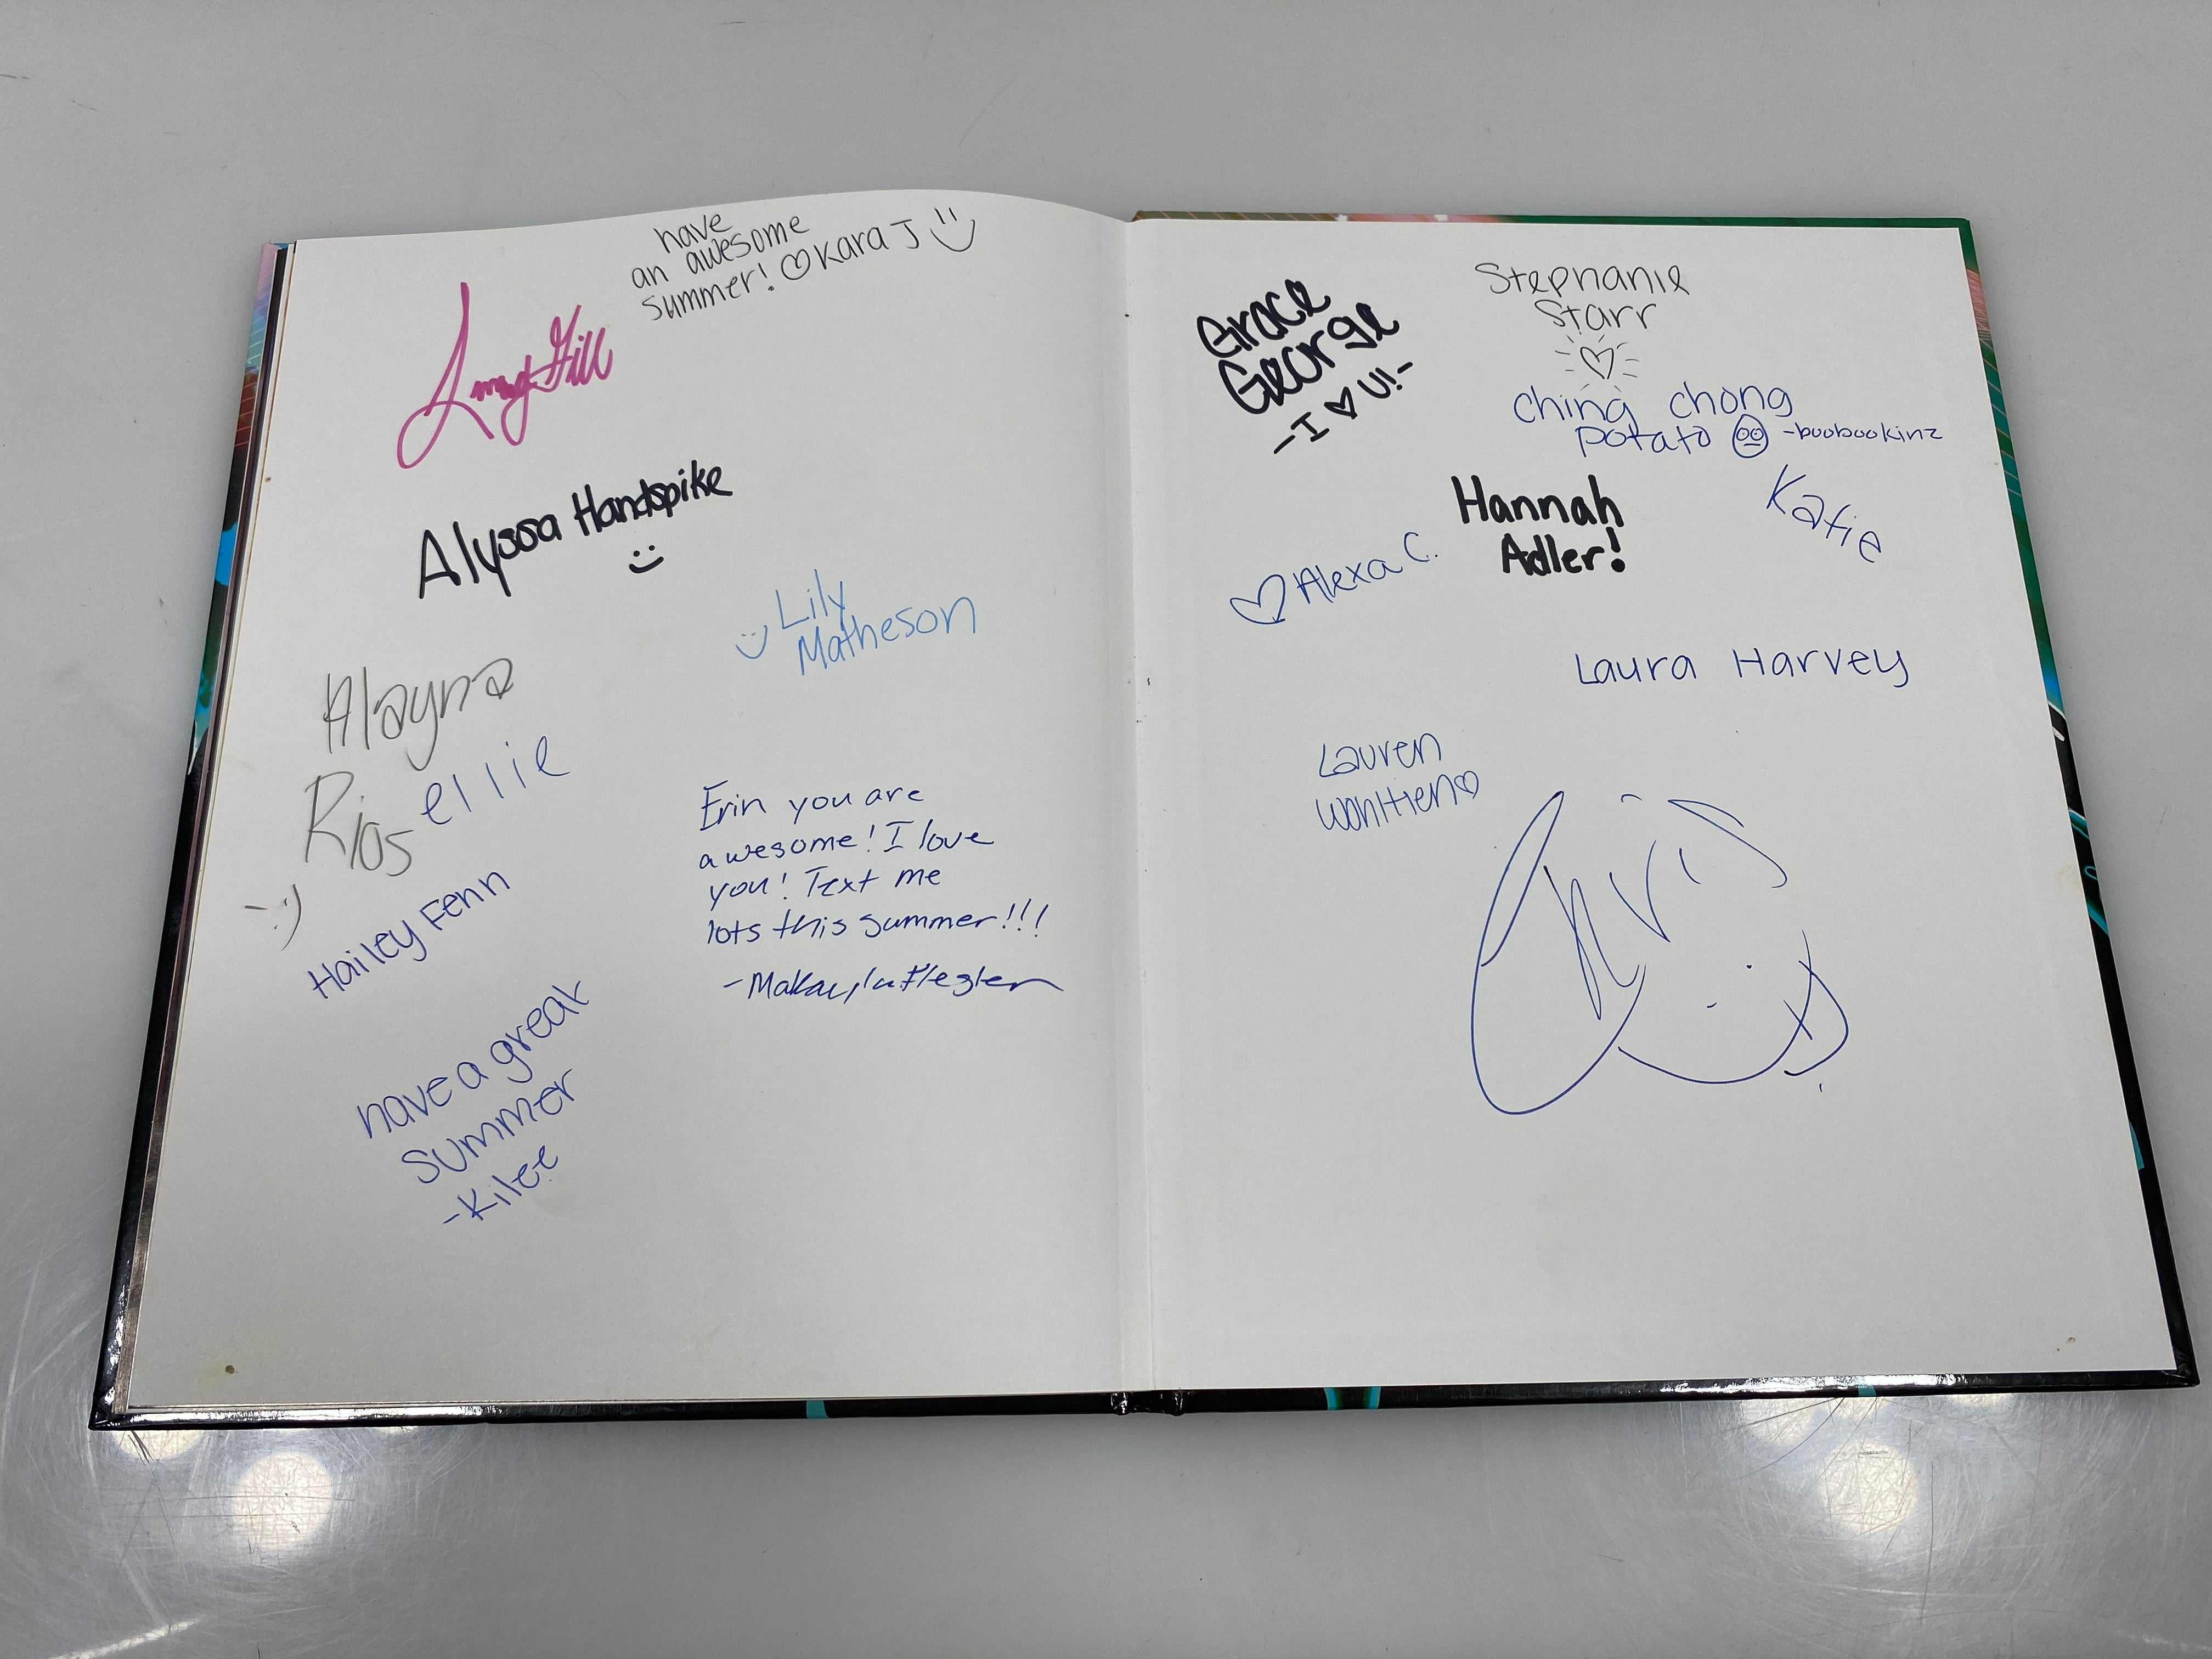 have
an awesome
summer! ♡ Kara J :)
Amy Gill
Alyssa Handspike
:)
:) Lily
Matheson
Alayna
Rios
:)
ellie
Hailey Fenn
have a great
summer
-Kilee
Erin you are
awesome! I love
you! Text me
lots this summer!!!
-Makayla
Grace
George
-I ♥ U!-
Stephanie
Starr
♡
ching chong
potato -boobookinz
Hannah
Adler!
Katie
♡ Alexa C.
Laura Harvey
Lauren
Chris